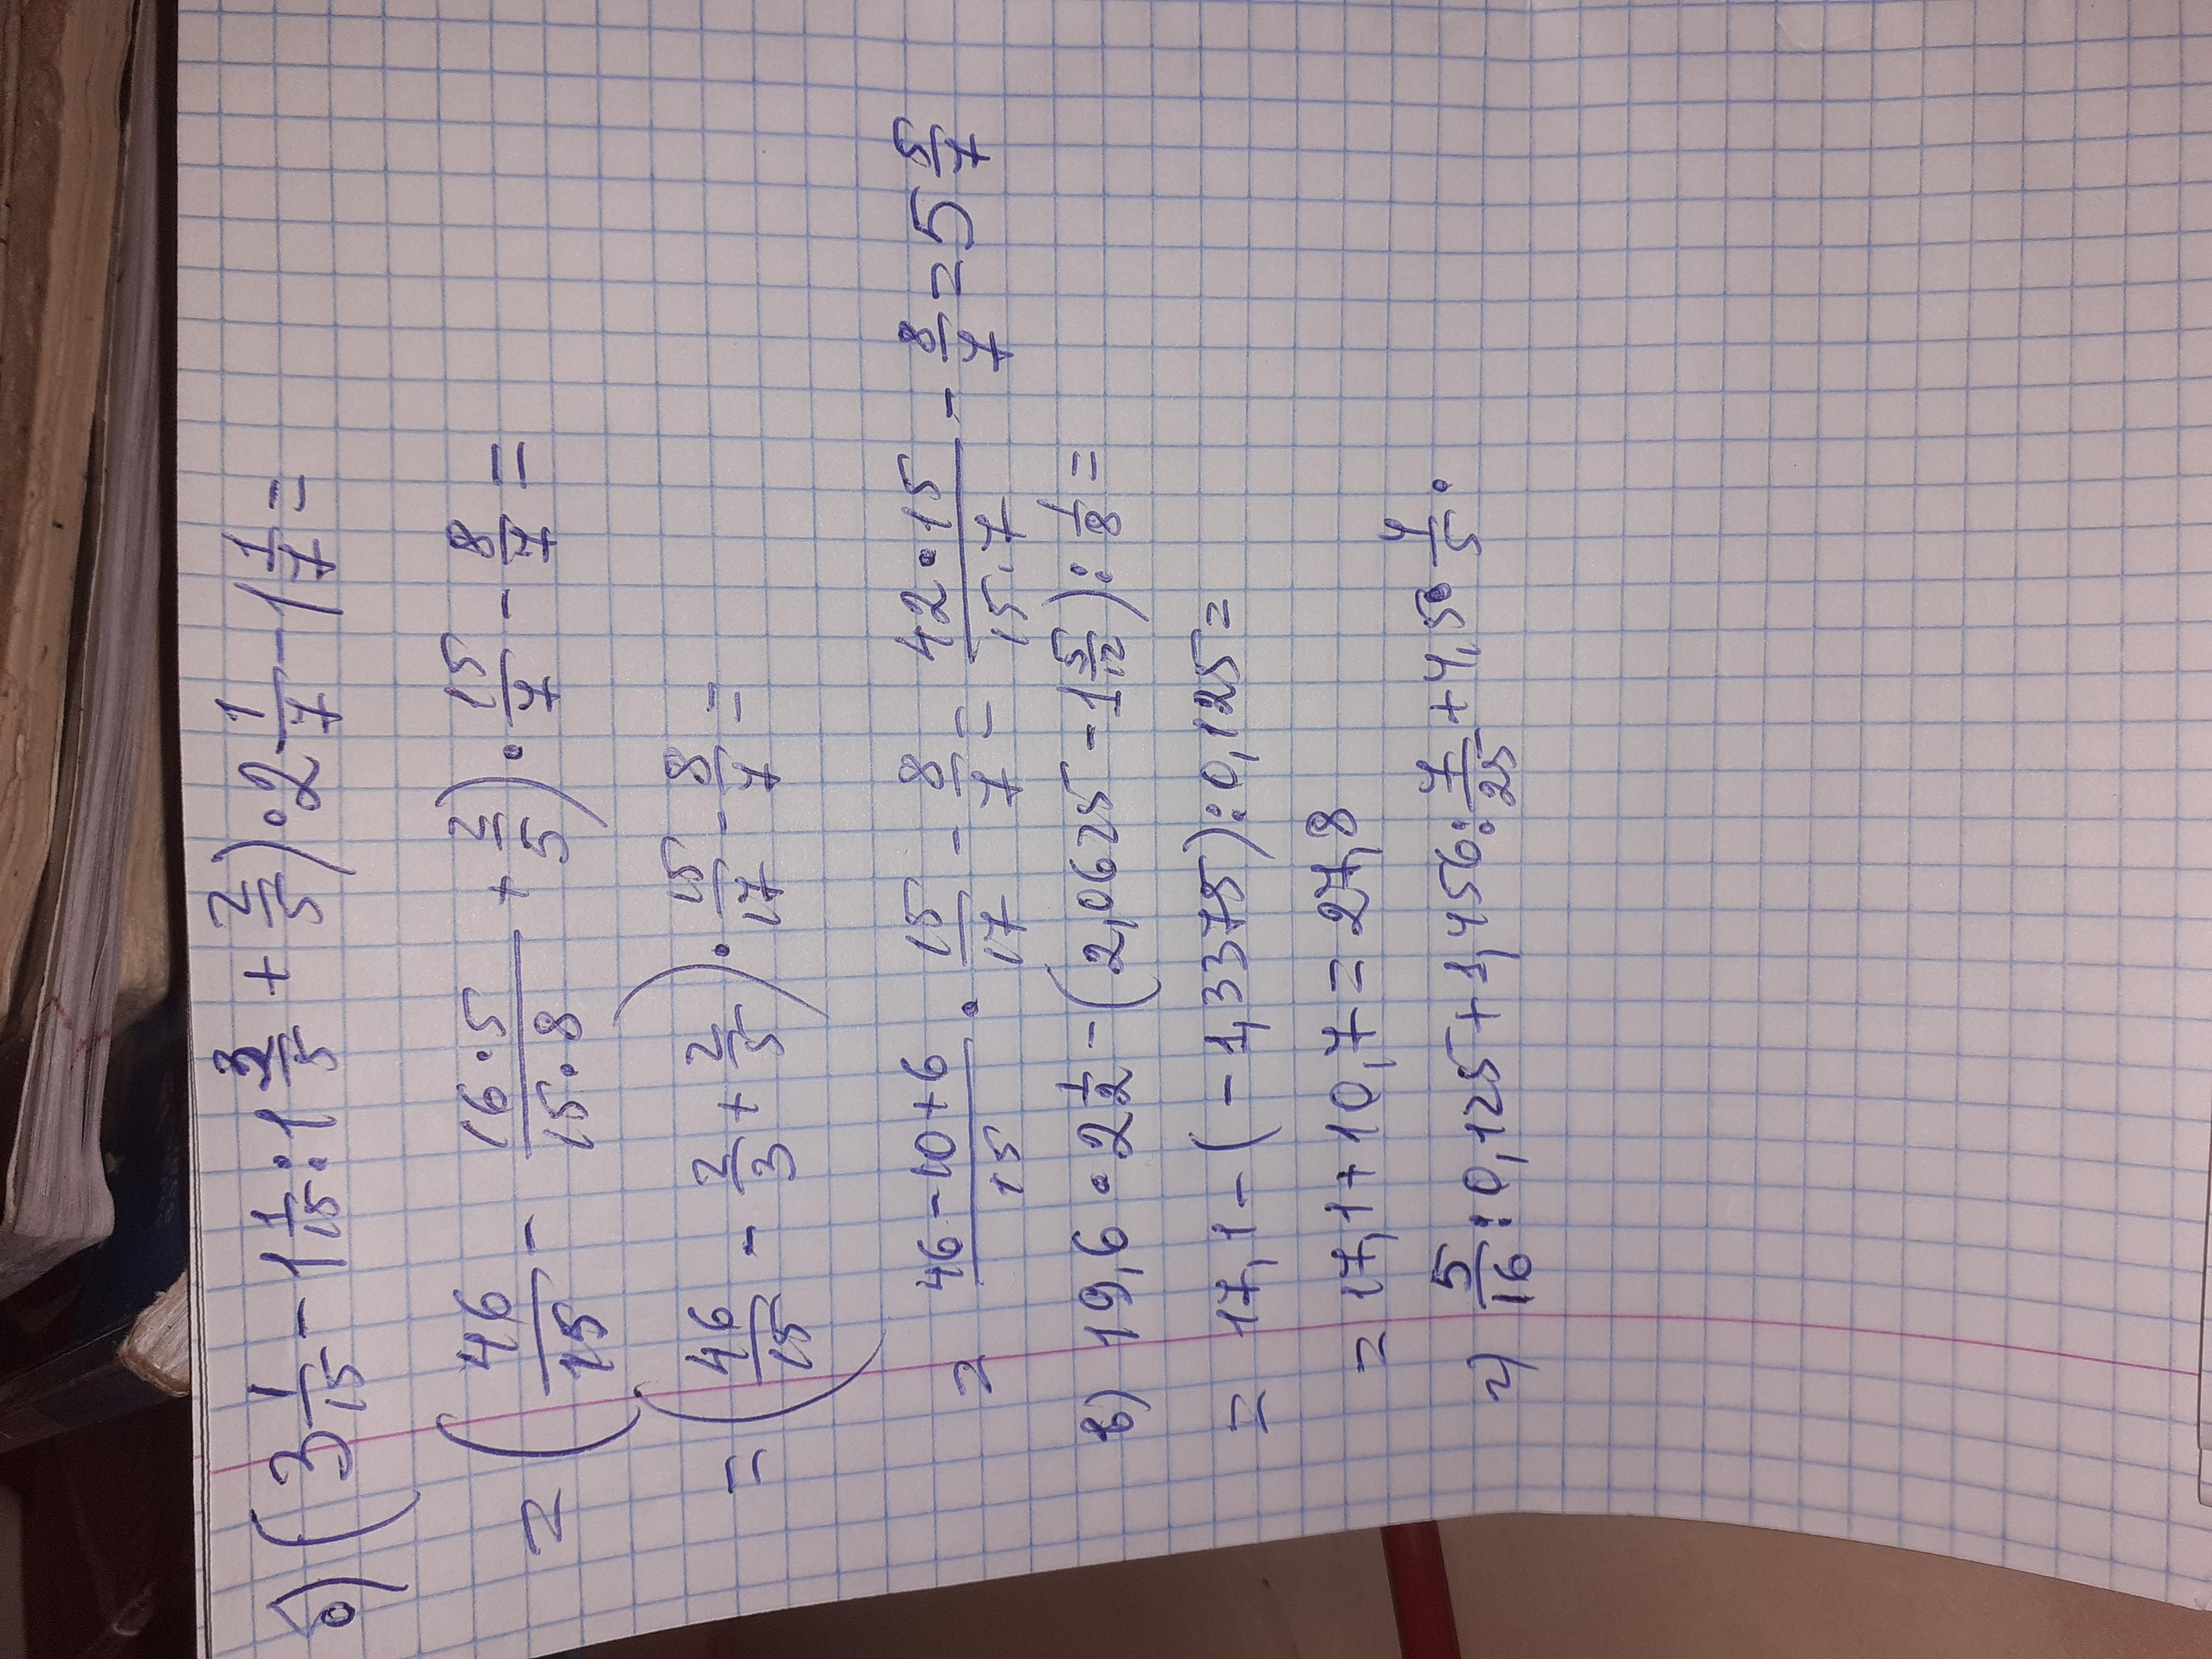 б) (3 1/15 - 1 1/15 : 1 3/5 + 2/5) · 2 1/7 - 1 1/7 =
= (46/15 - 16·5/15·8 + 2/5) · 15/7 - 8/7 =
= (46/15 - 2/3 + 2/5) · 15/17 - 8/7 =
= 46-10+6/15 · 15/17 - 8/7 = 42·15/15·7 - 8/7 = 5 5/7
в) 19,6 · 2 1/2 - (2,0625 - 1 5/12) : 1/8 =
= 17,1 - (-1,3375) : 0,125 =
= 17,1 + 10,7 = 27,8
г) 5/16 : 0,125 + 1,456 : 7/25 + 4,5 · 4/5 ·